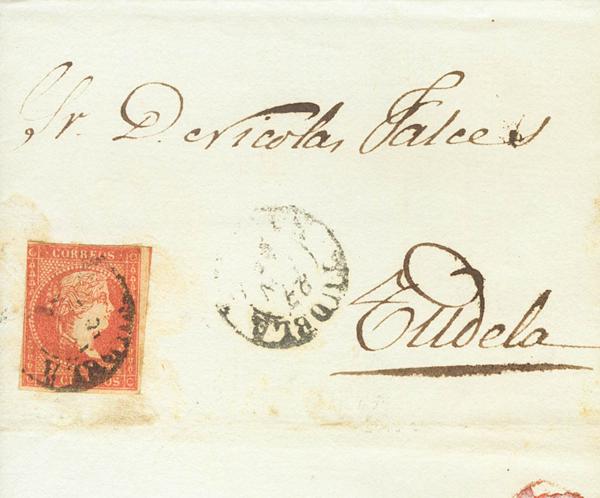 Sr. D. Nicolas Falces
Tudela
CORREOS
CUARTOS